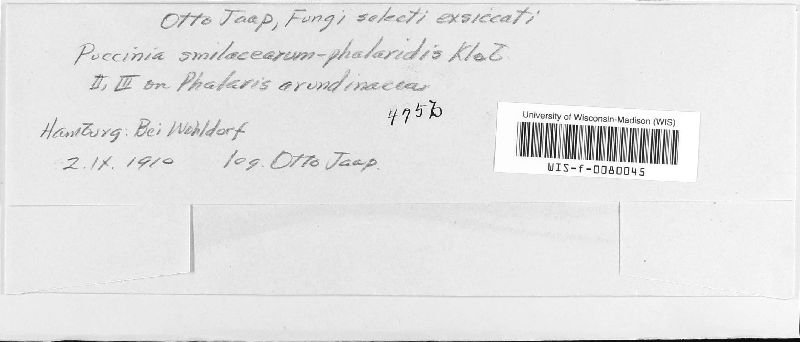 Otto Jaap, Fungi selecti exsiccati
Puccinia smilacearum-phalaridis Kleb
II, III on Phalaris arundinaceae
475b
University of Wisconsin-Madison (WIS)
WIS-f-0080045
Hamburg: Bei Wohldorf
2.IX.1910 leg. Otto Jaap.